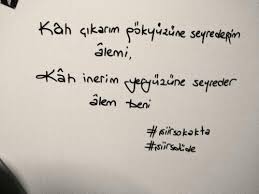 Kâh çıkarım gökyüzüne seyrederim
âlemi,
Kâh inerim yeryüzüne seyreder
âlem beni
#şiirsokakta
#şiirsokakta